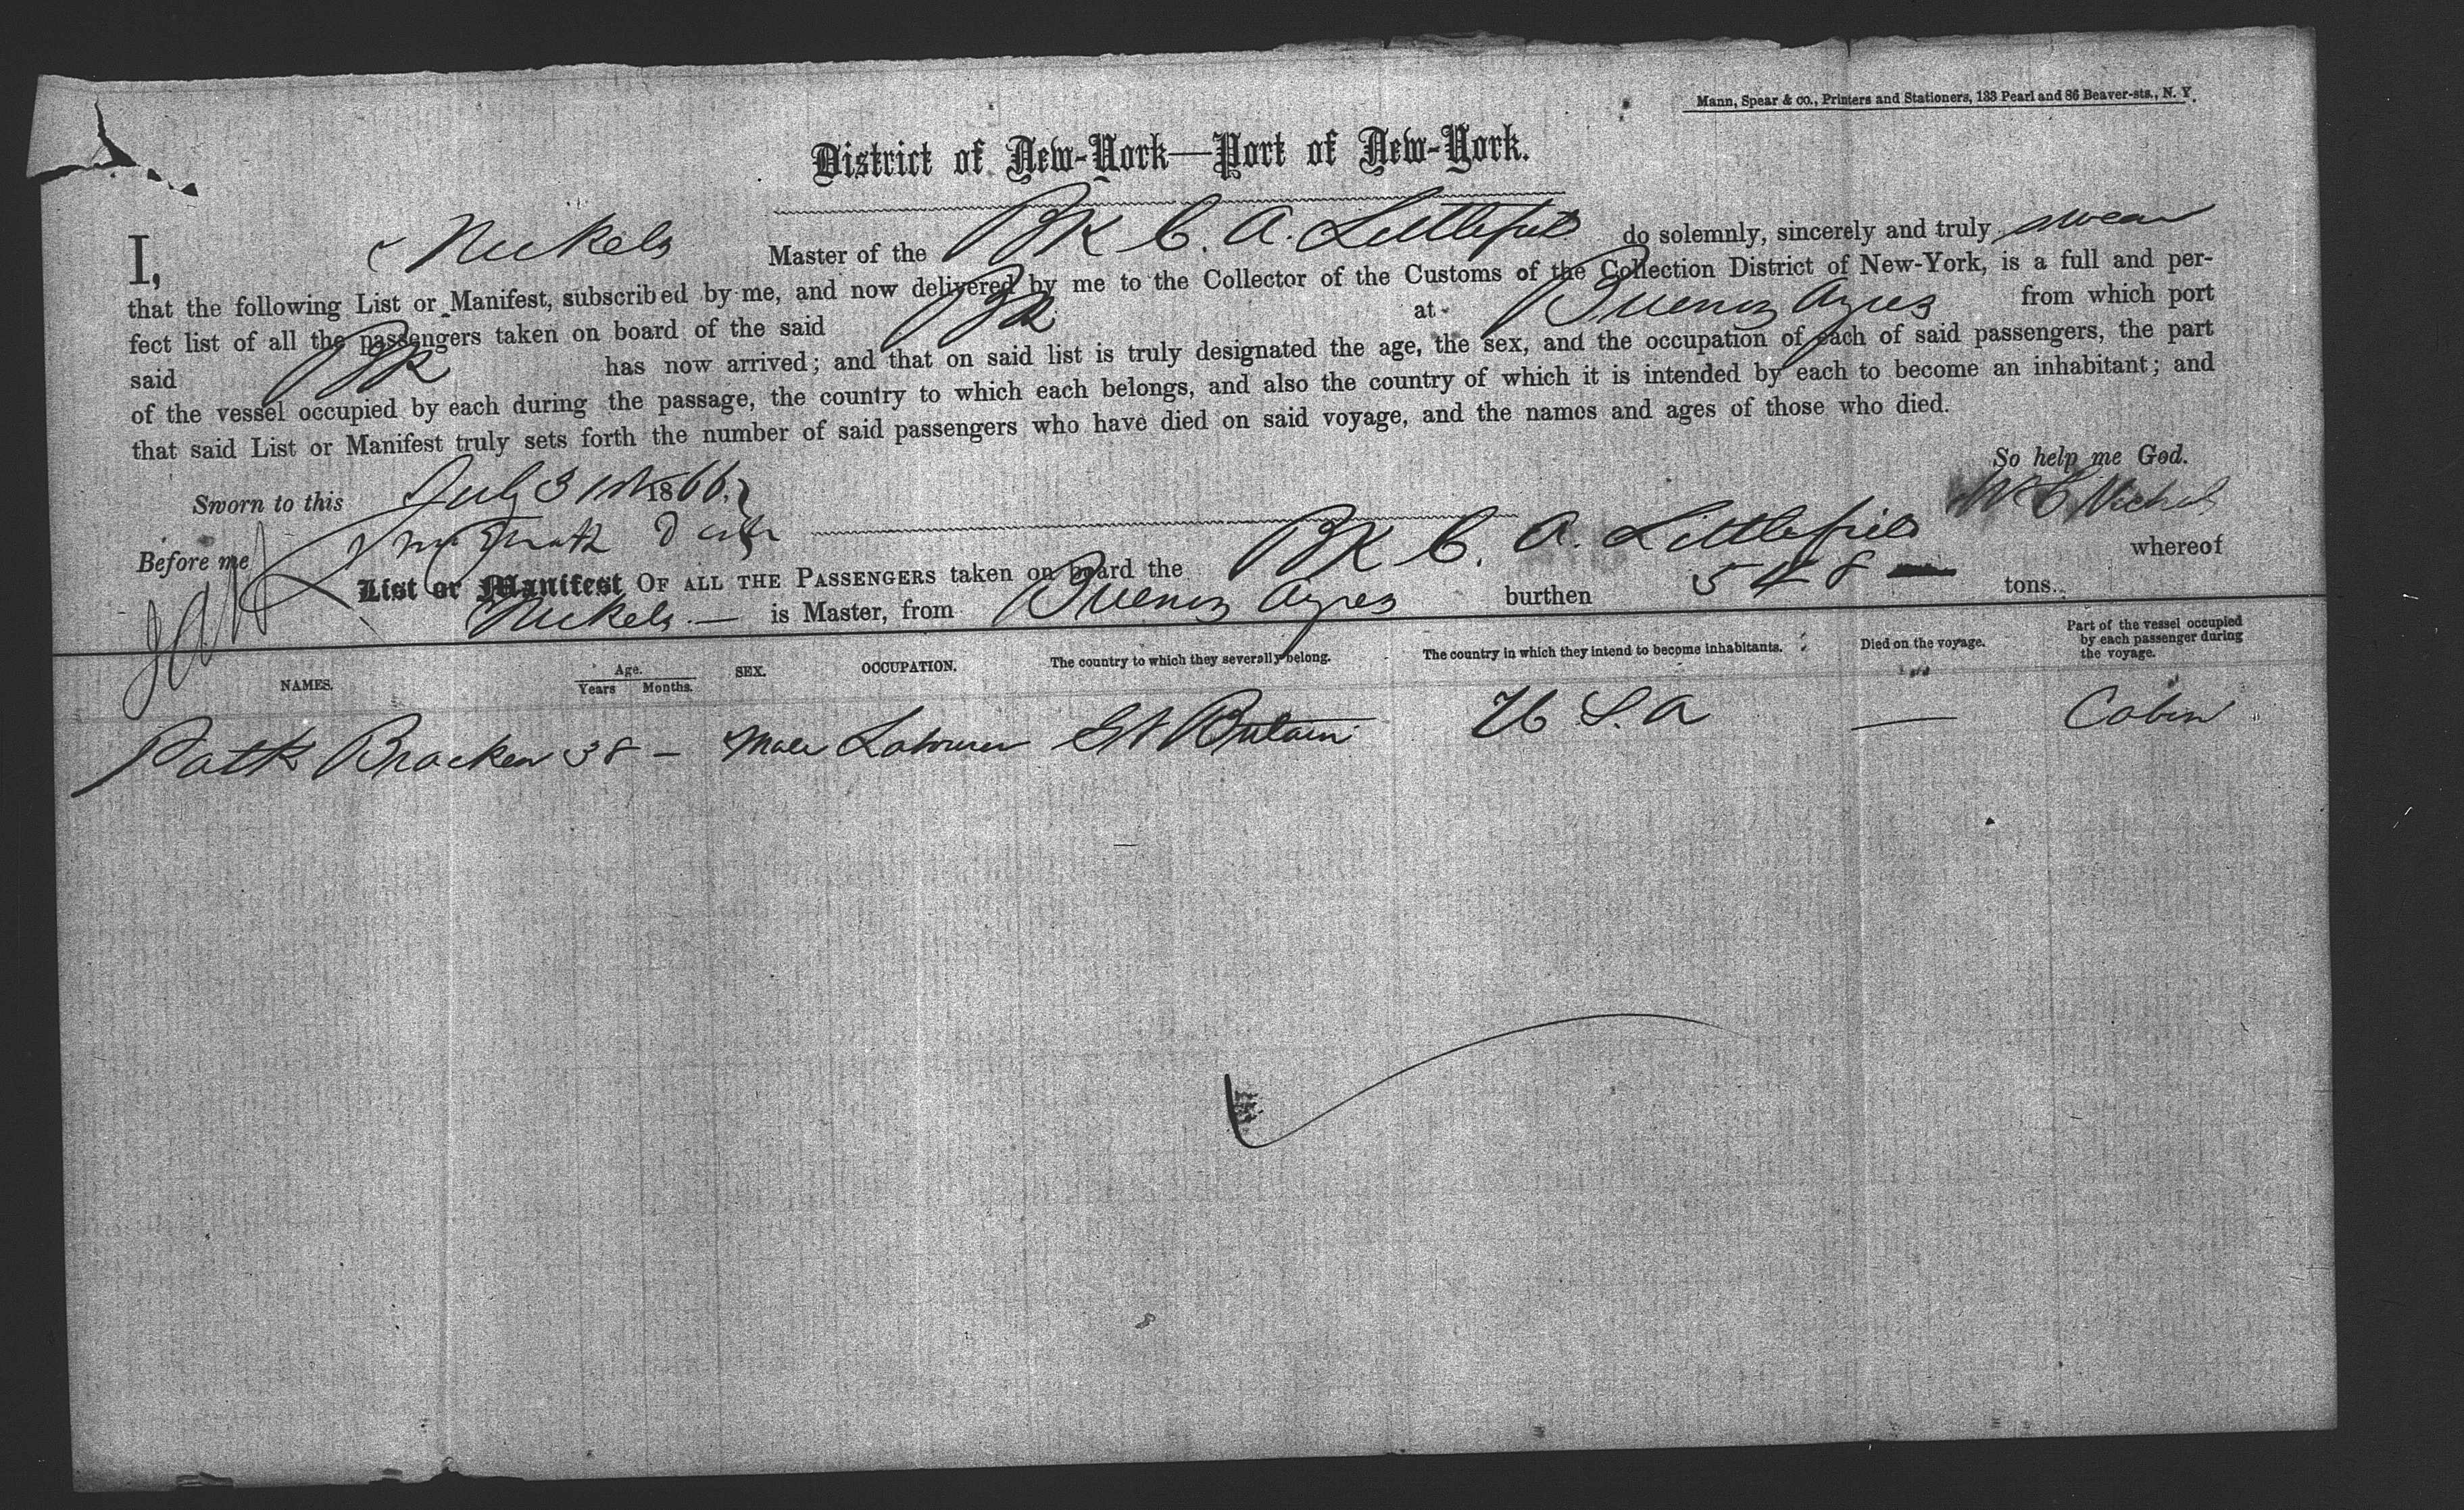 Mann, Spear & co., Printers and Stationers, 133 Pearl and 86 Beaver-sts., N. Y.
District of New-York—Port of New-York.
I, Nickels Master of the Bk C. A. Littlefield do solemnly, sincerely and truly swear
that the following List or Manifest, subscribed by me, and now delivered by me to the Collector of the Customs of the Collection District of New-York, is a full and per-
fect list of all the passengers taken on board of the said Bk at Buenos Ayres from which port
said Bk has now arrived; and that on said list is truly designated the age, the sex, and the occupation of each of said passengers, the part
of the vessel occupied by each during the passage, the country to which each belongs, and also the country of which it is intended by each to become an inhabitant; and
that said List or Manifest truly sets forth the number of said passengers who have died on said voyage, and the names and ages of those who died.
So help me God.
Sworn to this July 31st 1866.
Before me
List or Manifest OF ALL THE PASSENGERS taken on board the Bk C. A. Littlefield whereof
Nickels — is Master, from Buenos Ayres burthen 548 tons.
NAMES. Age. Years Months. SEX. OCCUPATION. The country to which they severally belong. The country in which they intend to become inhabitants. Died on the voyage. Part of the vessel occupied by each passenger during the voyage.
Patk Bracken 38 — Male Labourer Gt Britain U. S. A — Cabin